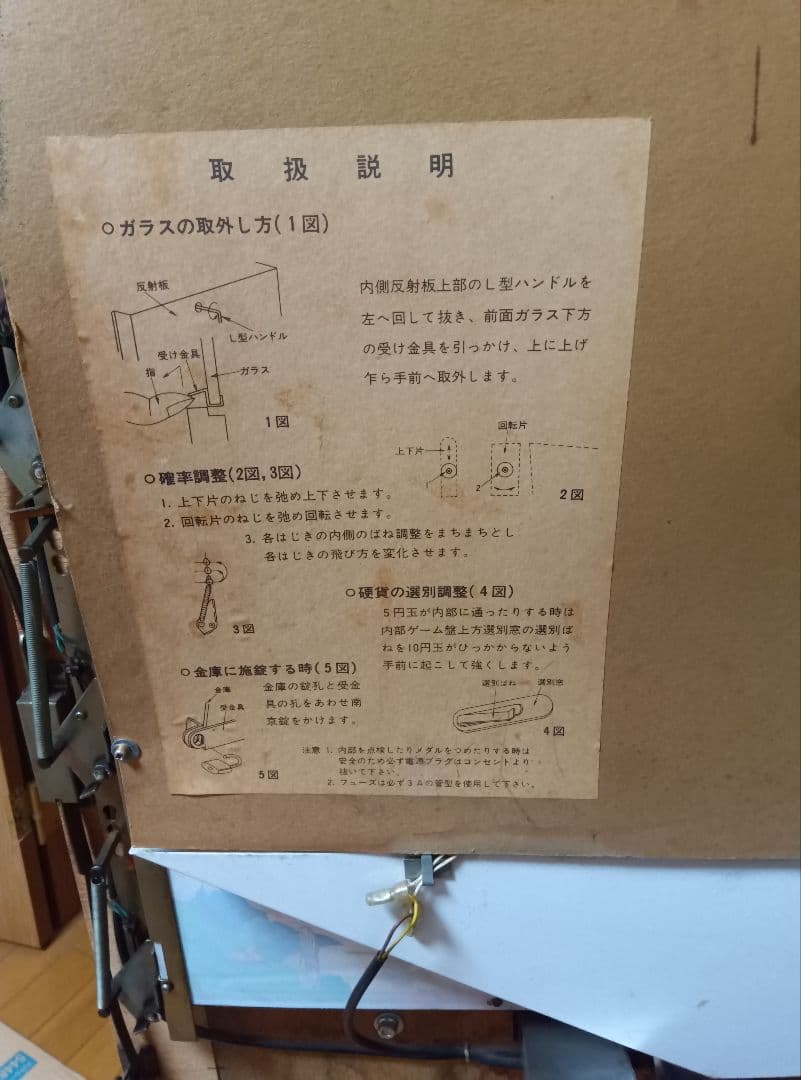 取扱説明
○ガラスの取外し方(1図)
反射板
L型ハンドル
受け金具
指
ガラス
1図
内側反射板上部のL型ハンドルを
左へ回して抜き、前面ガラス下方
の受け金具を引っかけ、上に上げ
乍ら手前へ取外します。
○確率調整(2図,3図)
1. 上下片のねじを弛め上下させます。
2. 回転片のねじを弛め回転させます。
3. 各はじきの内側のばね調整をまちまちとし
各はじきの飛び方を変化させます。
上下片
1
回転片
2
2図
3図
○硬貨の選別調整(4図)
5円玉が内部に通ったりする時は
内部ゲーム盤上方選別窓の選別ば
ねを10円玉がひっかからないよう
手前に起こして強くします。
選別ばね
選別窓
4図
○金庫に施錠する時(5図)
金庫
受金具
金庫の錠孔と受金
具の孔をあわせ南
京錠をかけます。
5図
注意 1. 内部を点検したりメダルをつめたりする時は
安全のため必ず電源プラグはコンセントより
抜いて下さい。
2. フューズは必ず3Aの管型を使用して下さい。